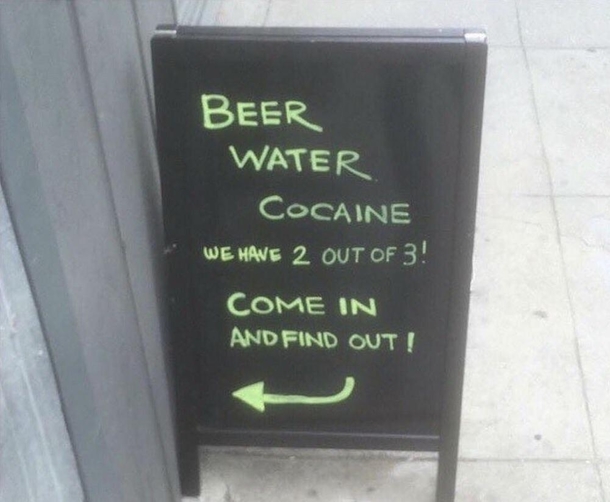 BEER
WATER
COCAINE
WE HAVE 2 OUT OF 3!
COME IN
AND FIND OUT!